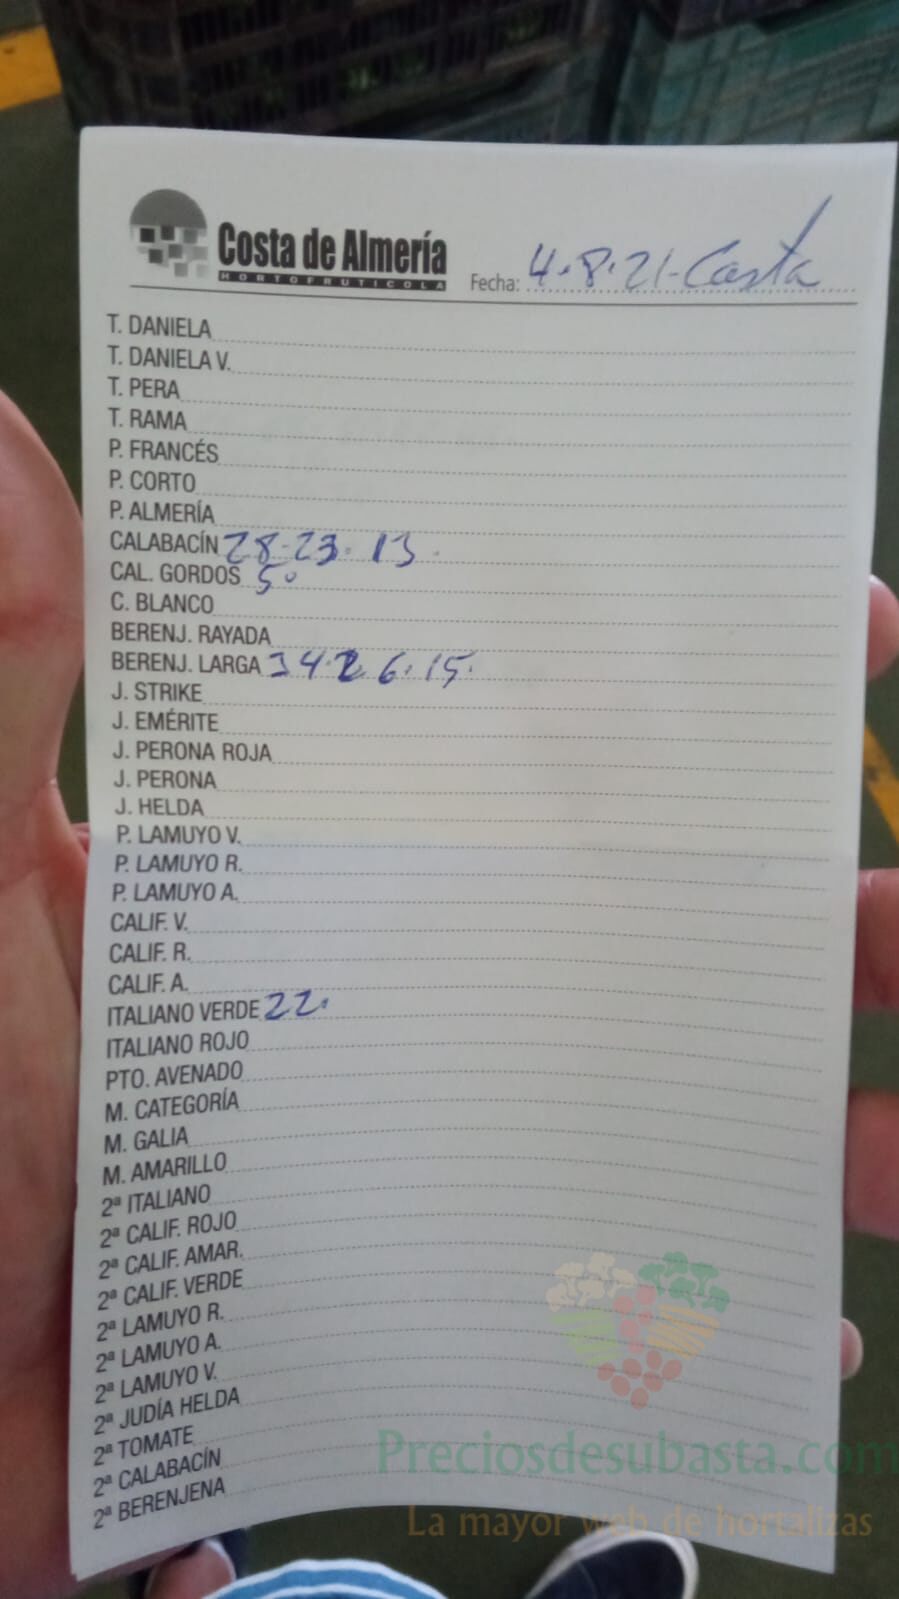 Costa de Almería
HORTOFRUTICOLA
Fecha: 4.8.21-Costa
T. DANIELA
T. DANIELA V.
T. PERA
T. RAMA
P. FRANCÉS
P. CORTO
P. ALMERÍA
CALABACÍN 28-23. 13.
CAL. GORDOS 5º
C. BLANCO
BERENJ. RAYADA
BERENJ. LARGA 34.26.15.
J. STRIKE
J. EMÉRITE
J. PERONA ROJA
J. PERONA
J. HELDA
P. LAMUYO V.
P. LAMUYO R.
P. LAMUYO A.
CALIF. V.
CALIF. R.
CALIF. A.
ITALIANO VERDE 22.
ITALIANO ROJO
PTO. AVENADO
M. CATEGORÍA
M. GALIA
M. AMARILLO
2ª ITALIANO
2ª CALIF. ROJO
2ª CALIF. AMAR.
2ª CALIF. VERDE
2ª LAMUYO R.
2ª LAMUYO A.
2ª LAMUYO V.
2ª JUDÍA HELDA
2ª TOMATE
2ª CALABACÍN
2ª BERENJENA
Preciosdesubasta.com
La mayor web de hortalizas